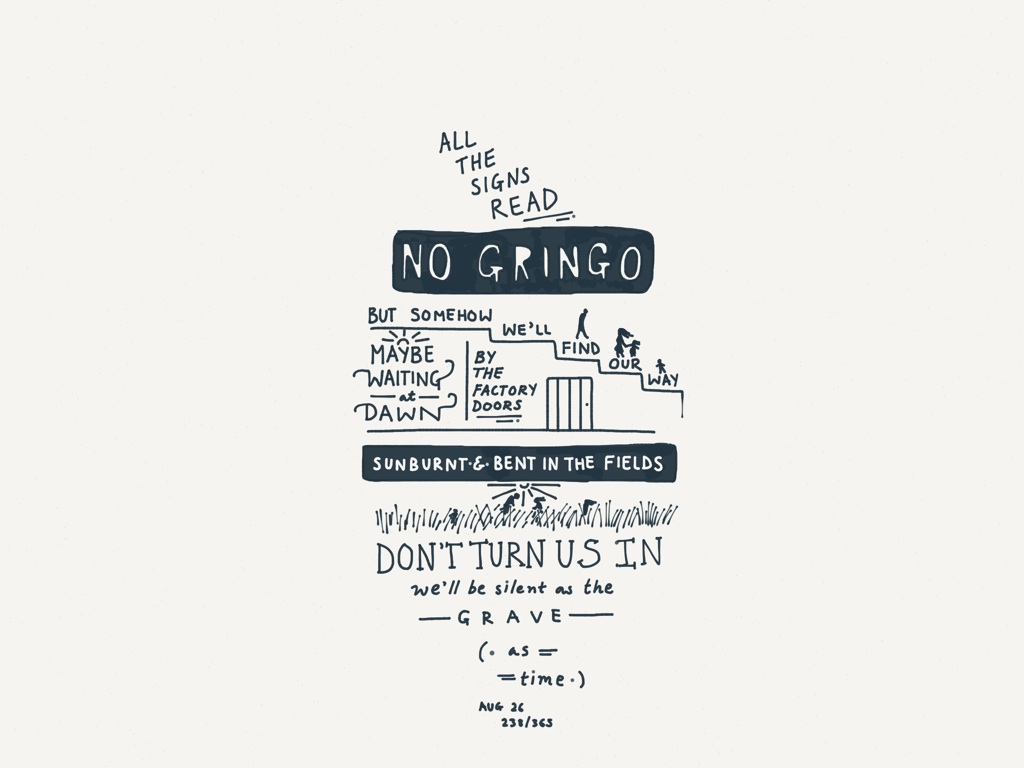 ALL
THE
SIGNS
READ
NO GRINGO
BUT SOMEHOW
WE'LL
FIND
OUR
WAY
MAYBE
WAITING
at
DAWN
BY
THE
FACTORY
DOORS
SUNBURNT & BENT IN THE FIELDS
DON'T TURN US IN
we'll be silent as the
GRAVE
(. as =
= time .)
AUG 26
238/365